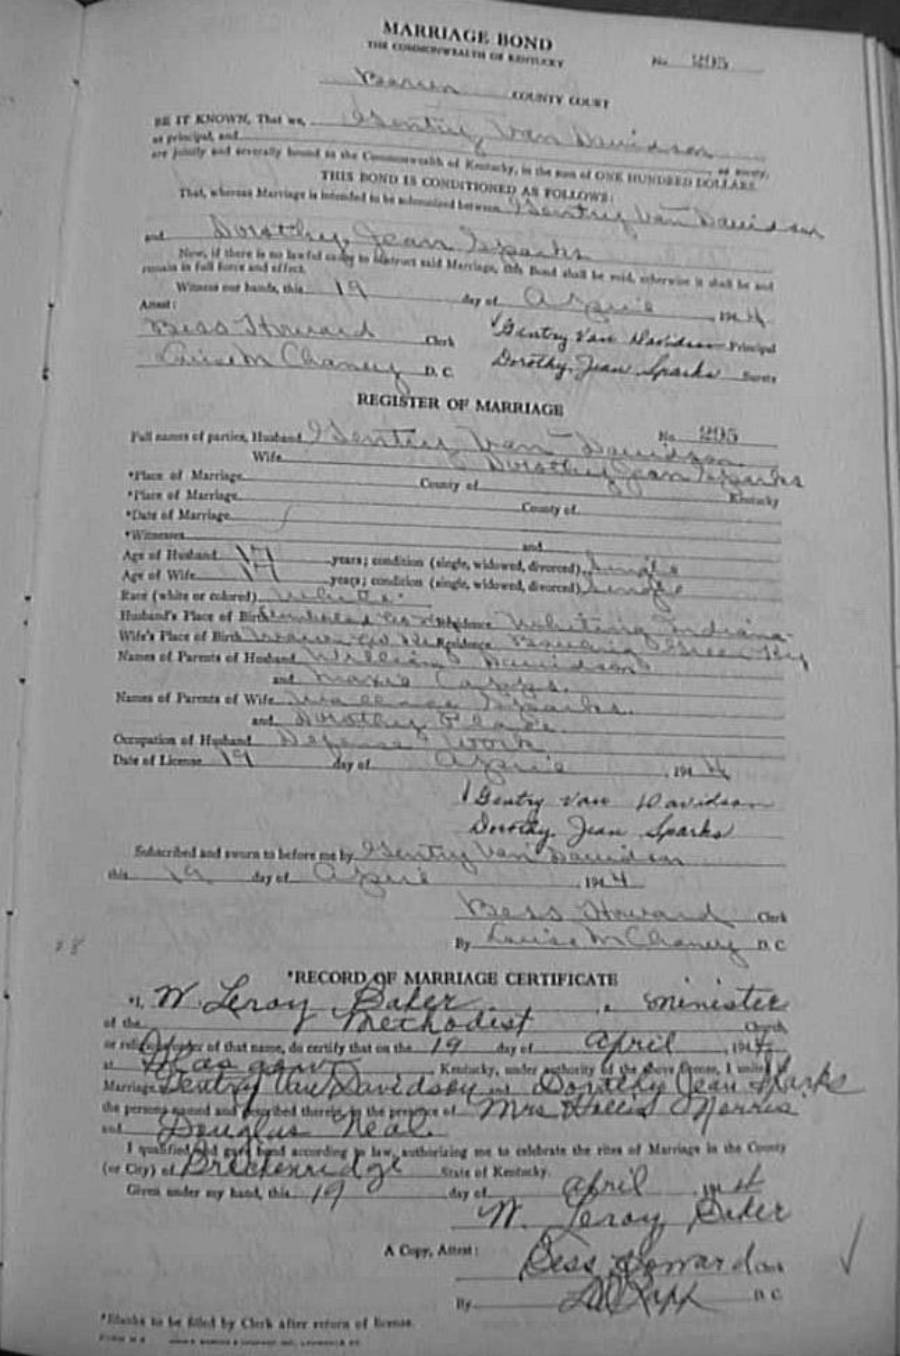 MARRIAGE BOND
THE COMMONWEALTH OF KENTUCKY
No. 295
Barren COUNTY COURT
BE IT KNOWN, That we, Gentry Van Davidson
as principal, and as surety,
are jointly and severally bound to the Commonwealth of Kentucky, in the sum of ONE HUNDRED DOLLARS.
THIS BOND IS CONDITIONED AS FOLLOWS:
That, whereas Marriage is intended to be solemnized between Gentry Van Davidson
and Dorothy Jean Sparks
Now, if there is no lawful cause to obstruct said Marriage, this Bond shall be void, otherwise it shall be and
remain in full force and effect.
Witness our hands, this 19 day of April, 1944
Attest:
Bess Howard Clerk Gentry Van Davidson Principal
Louise M Chaney D. C. Dorothy Jean Sparks Surety
REGISTER OF MARRIAGE
No. 295
Full names of parties, Husband Gentry Van Davidson
Wife Dorothy Jean Sparks
*Place of Marriage County of Kentucky
*Place of Marriage County of
*Date of Marriage
*Witnesses and
Age of Husband 17 years; condition (single, widowed, divorced) Single
Age of Wife 17 years; condition (single, widowed, divorced) Single
Race (white or colored) White
Husband's Place of Birth Co Residence Whiting Indiana
Wife's Place of Birth Co Residence Bowling Green Ky
Names of Parents of Husband William Davidson
and Maxie
Names of Parents of Wife Wallace Sparks
and Dorothy
Occupation of Husband Defense Work
Date of License 19 day of April, 1944
Gentry Van Davidson
Dorothy Jean Sparks
Subscribed and sworn to before me by Gentry Van Davidson
this 19 day of April, 1944
Bess Howard Clerk
By Louise M Chaney D C
*RECORD OF MARRIAGE CERTIFICATE
*I, W. Leroy Baker, a minister
of the Methodist Church,
or religious order of that name, do certify that on the 19 day of April, 1944
at Glasgow, Kentucky, under authority of the above license, I united in
Marriage Gentry Van Davidson and Dorothy Jean Sparks
the persons named and described therein, in the presence of Mrs Hollis Morris
and Douglas Neal.
I qualified and gave bond according to law, authorizing me to celebrate the rites of Marriage in the County
(or City) of Breckenridge State of Kentucky.
Given under my hand, this 19 day of April, 1944
W. Leroy Baker
A Copy, Attest:
Bess Howard Clerk
By D C
*Blanks to be filled by Clerk after return of license.